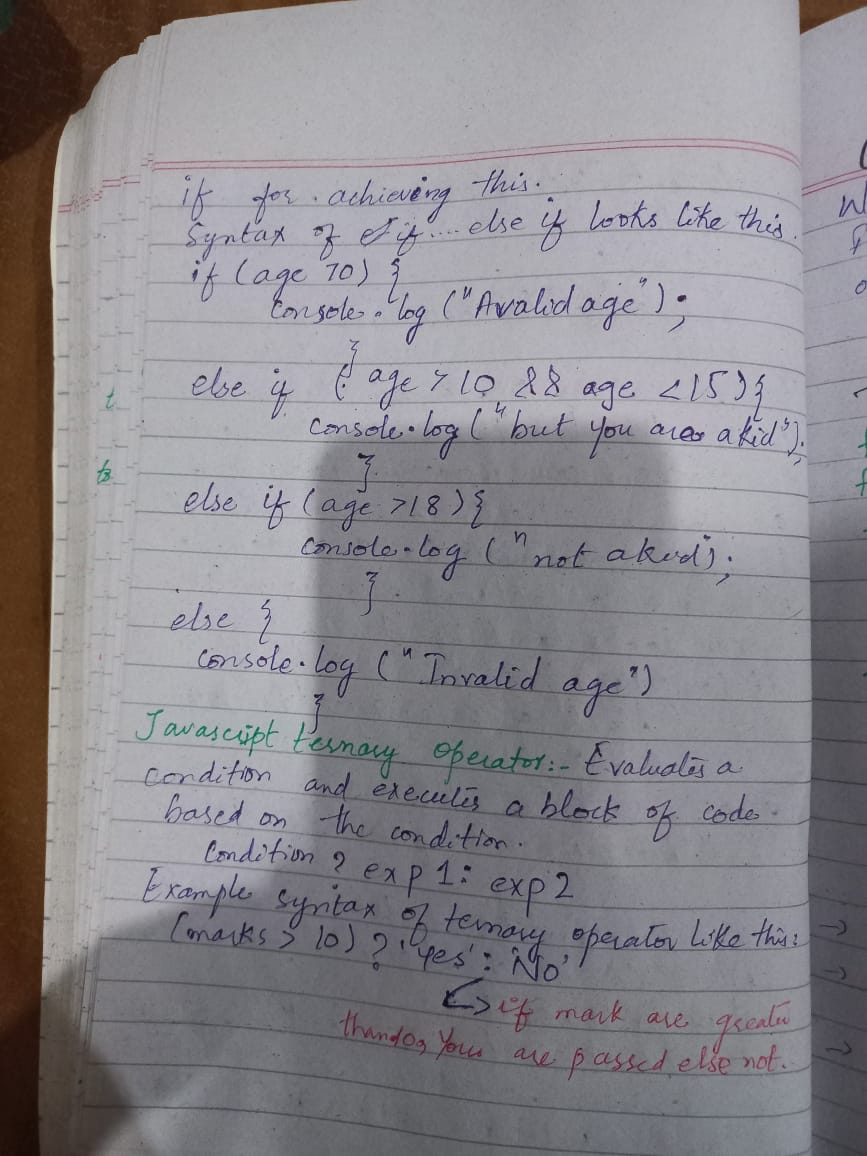 if for achieving this.
Syntax of if... else if looks like this.
if (age >0) {
console.log ("A valid age");
}
else if ( age > 10 && age <15) {
console.log ("but you are a kid");
}
else if (age >18) {
console.log ("not a kid);
}
else {
console.log ("Invalid age")
}
Javascript ternary operator:- Evaluates a
condition and executes a block of code
based on the condition.
Condition ? exp 1: exp2
Example syntax of ternary operator like this:
(marks > 10) ? 'yes' : 'No'
if mark are greater
than you are passed else not.